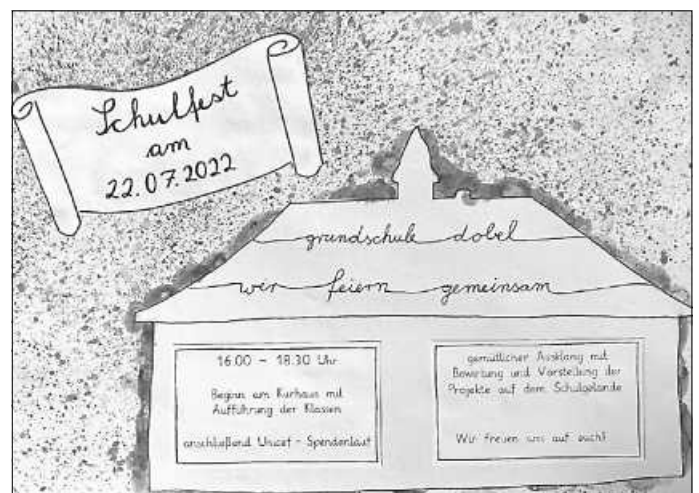 Schulfest
am
22.07.2022
grundschule dobel
wir feiern gemeinsam
16.00 - 18.30 Uhr
Beginn am Kurhaus mit
Aufführung der Klassen
anschließend Unicef - Spendenlauf
gemütlicher Ausklang mit
Bewirtung und Vorstellung der
Projekte auf dem Schulgelände
Wir freuen uns auf euch!